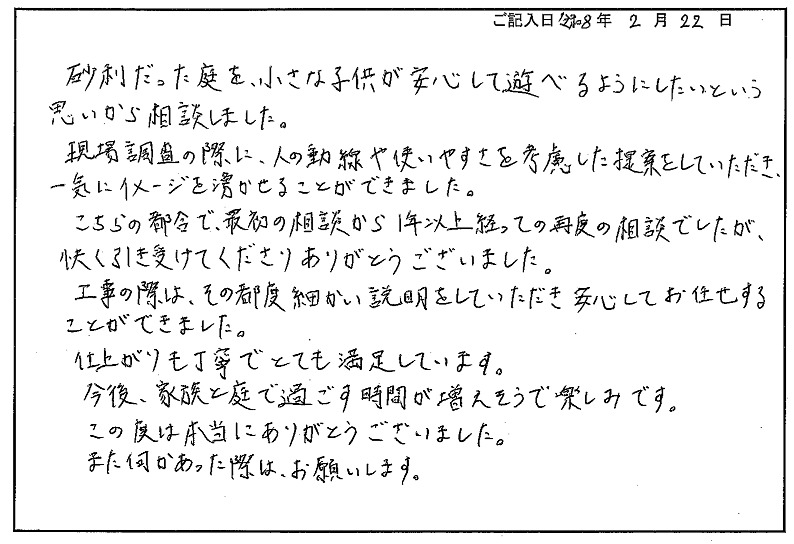 ご記入日 令和8年 2月 22日
砂利だった庭を、小さな子供が安心して遊べるようにしたいという
思いから相談しました。
現場調査の際に、人の動線や使いやすさを考慮した提案をしていただき、
一気にイメージを湧かせることができました。
こちらの都合で、最初の相談から1年以上経っての再度の相談でしたが、
快く引き受けてくださりありがとうございました。
工事の際は、その都度細かい説明をしていただき安心してお任せする
ことができました。
仕上がりも丁寧でとても満足しています。
今後、家族と庭で過ごす時間が増えそうで楽しみです。
この度は本当にありがとうございました。
また何かあった際は、お願いします。